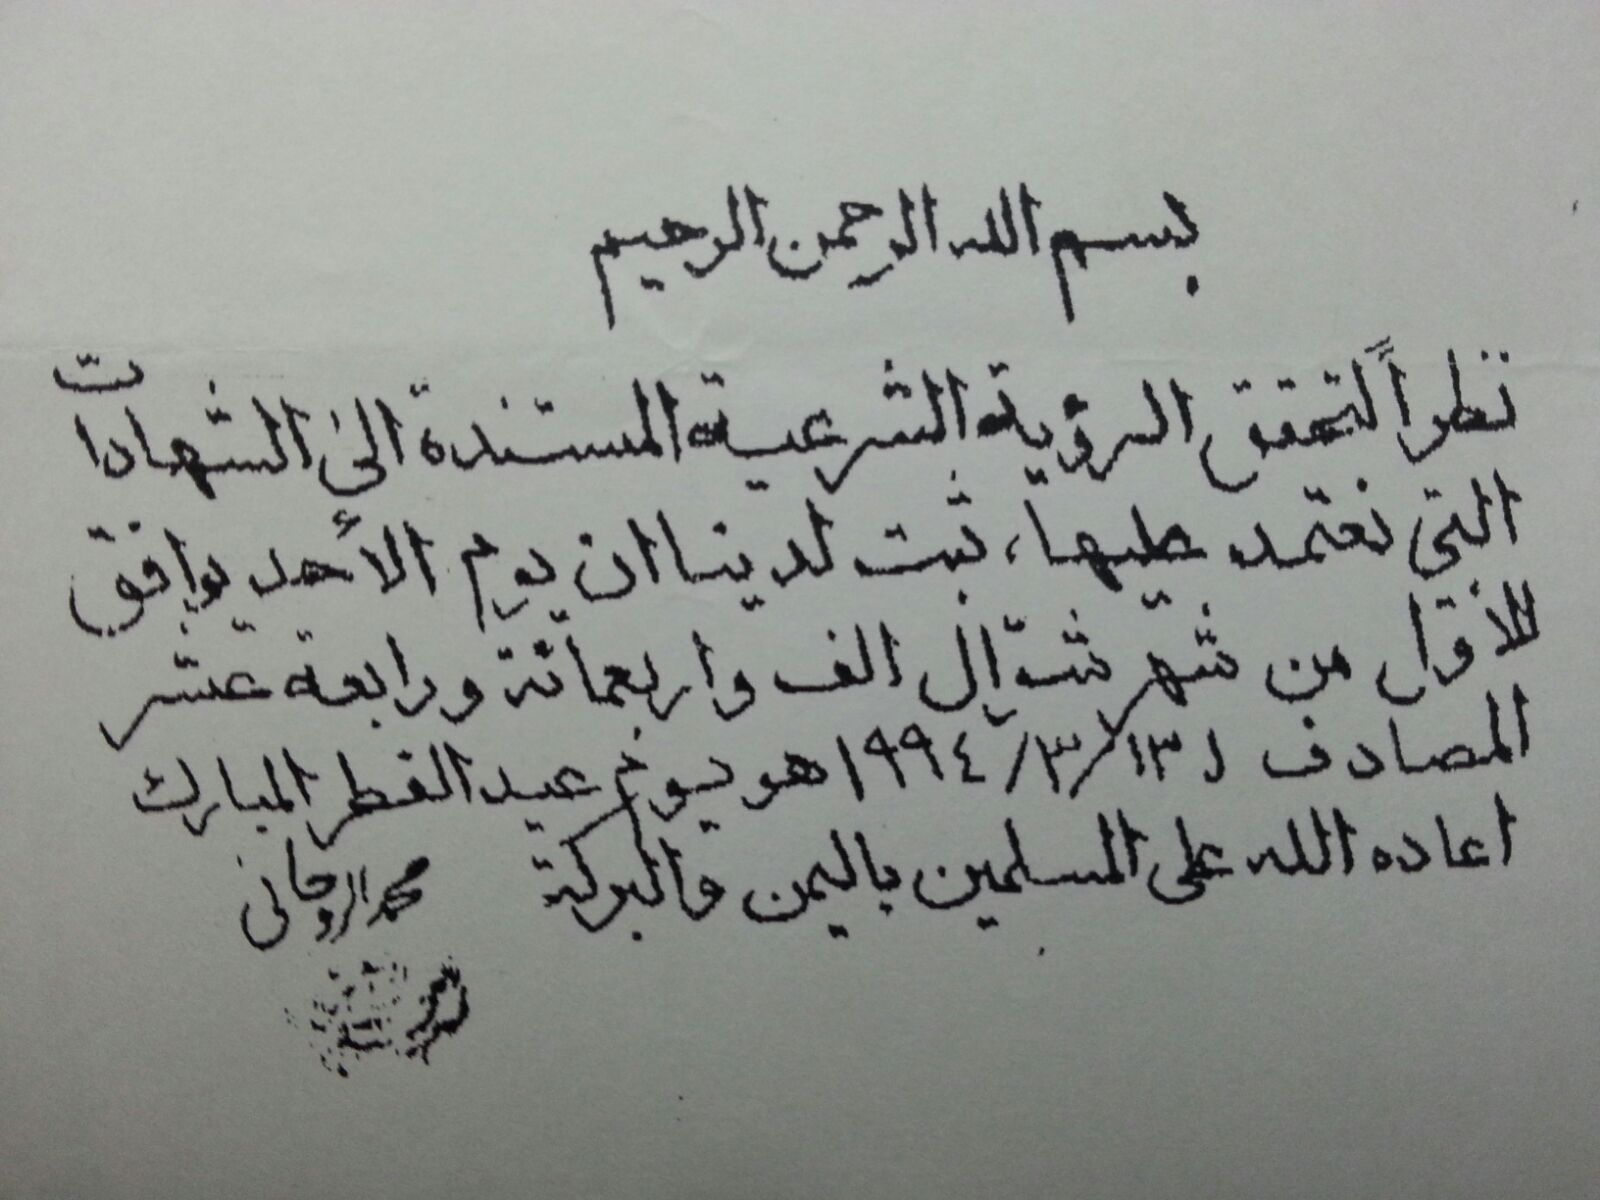 بسم الله الرحمن الرحيم
نظراً لتحقق الرؤية الشرعية المستندة الى الشهادات
التي نعتمد عليها، ثبت لدينا ان يوم الأحد يوافق
للأول من شهر شوّال الف واربعمائة ورابعة عشر
المصادف ١٣/٣/١٩٩٤ هو يوم عيد الفطر المبارك
اعاده الله على المسلمين باليمن والبركة
محمد الروحاني